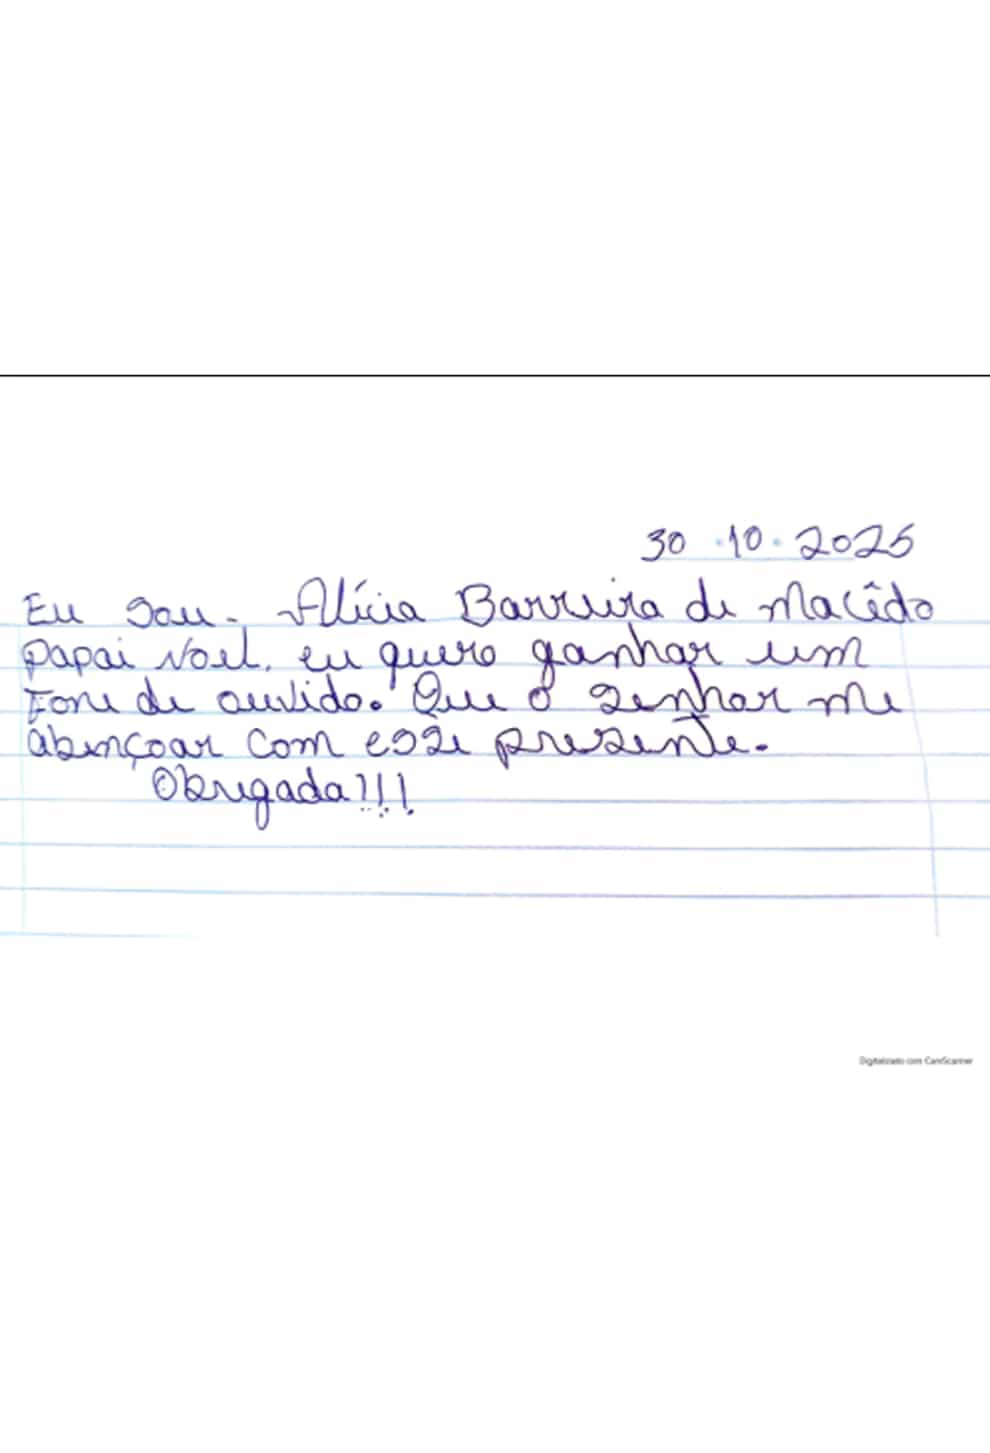 30 · 10 · 2025
Eu sou - Alícia Barreira de Macêdo
papai Noel. eu quero ganhar um
Fone de ouvido. Que o senhor me
abençoar com esse presente.
Obrigada!!!
Digitalizado com CamScanner